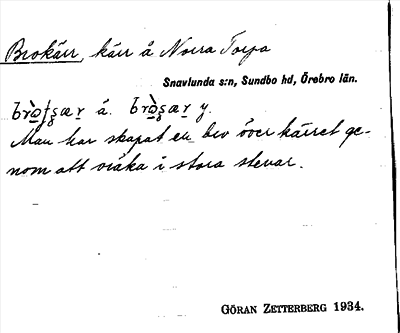 Brokärr, kärr å Norra Torpa
Snavlunda s:n, Sundbo hd, Örebro län.
å. y.
Man har skapat en bro över kärret ge-
nom att vräka i stora stenar.
GÖRAN ZETTERBERG 1934.